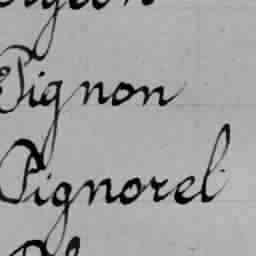 Pignon
Pignorel